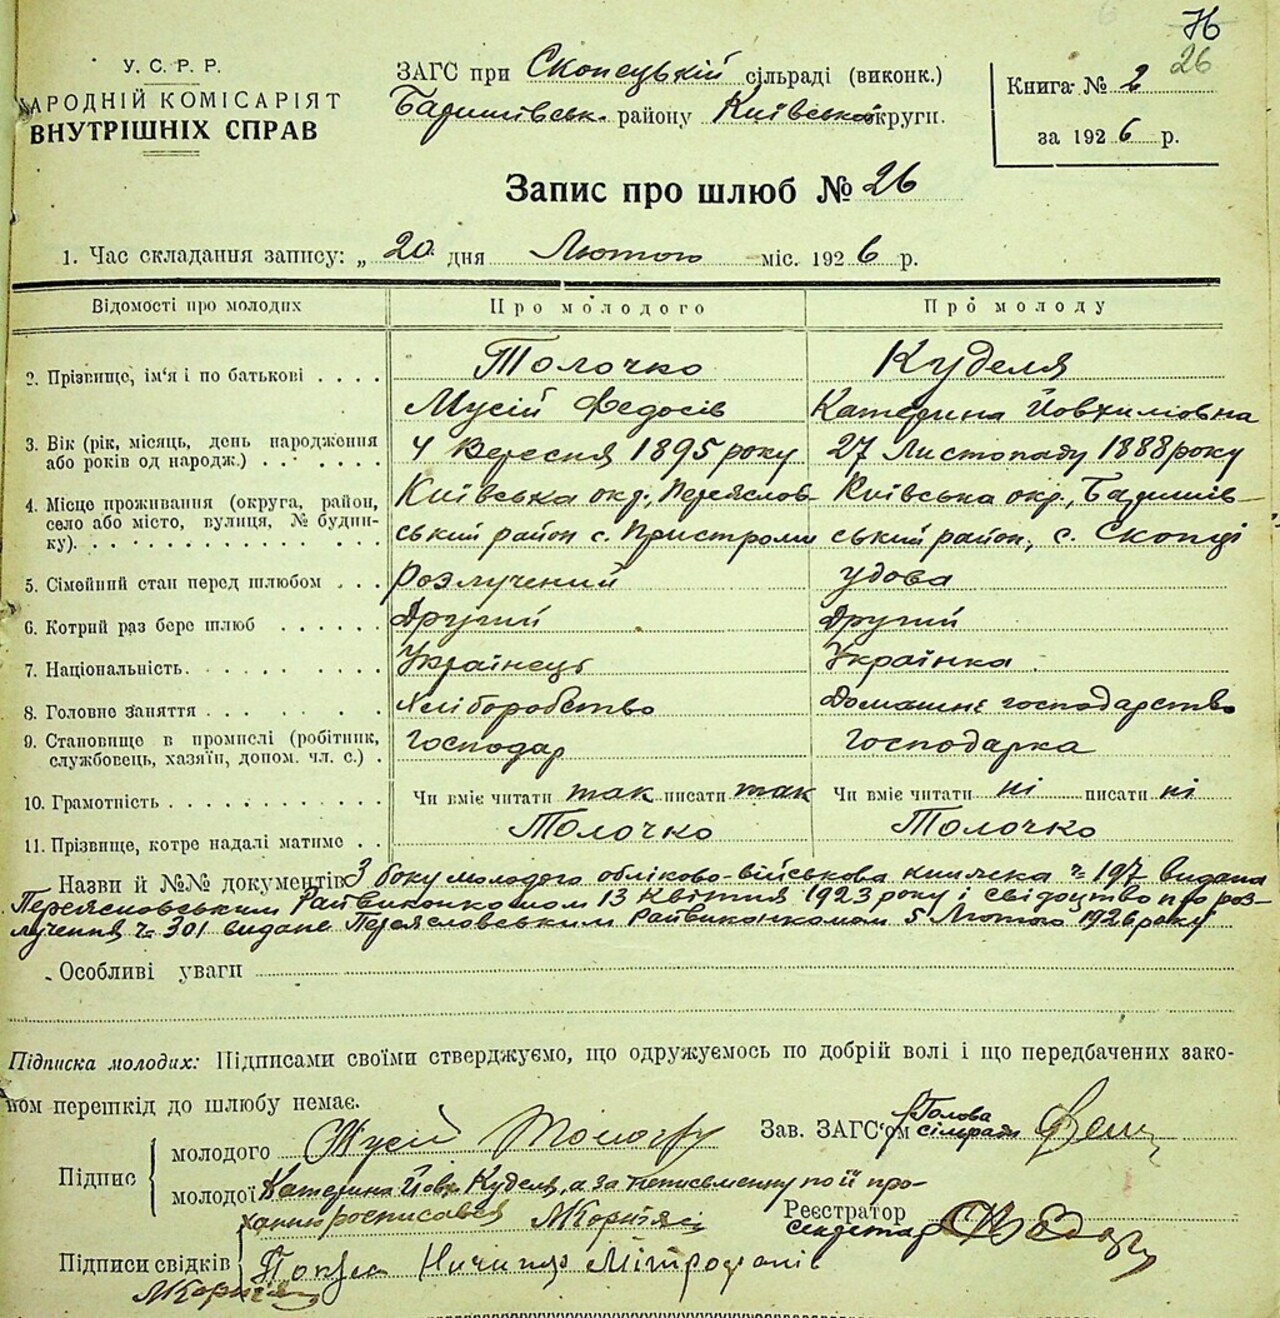 26
У. С. Р. Р.
НАРОДНІЙ КОМІСАРІЯТ
ВНУТРІШНІХ СПРАВ
ЗАГС при Скопецькій сільраді (виконк.)
Баришівськ. району Київської округи.
Книга № 2
за 1926 р.
Запис про шлюб № 26
1. Час складання запису: „ 20 дня Лютого міс. 1926 р.
Відомості про молодих Про молодого Про молоду
2. Прізвище, ім'я і по батькові . . . . Толочко Куделя
Мусій Федосів Катерина Йовхимовна
3. Вік (рік, місяць, день народження або років од народж.) . . . . . . . 4 Вересня 1895 року 27 Листопаду 1888 року
4. Місце проживання (округа, район, село або місто, вулиця, № будинку). Київська окр., Переяслов- Київська окр., Баришів-
ський район с. Пристроми ський район, с. Скопці
5. Сімейний стан перед шлюбом . . . розлучений удова
6. Котрий раз бере шлюб . . . . . . Другий Другий
7. Національність. . . . . . . . . Українець Українка
8. Головне заняття . . . . . . . . Хліборобство Домашнє господарство
9. Становище в промислі (робітник, службовець, хазяїн, допом. чл. с.) . господар господарка
10. Грамотність . . . . . . . . . . . Чи вміє читати так писати так Чи вміє читати ні писати ні
11. Прізвище, котре надалі матиме . . Толочко Толочко
Назви й №№ документів З боку молодого обліково-військова книжка № 197 видана
Переясловським Райвиконкомом 13 Квітня 1923 року і свідоцтво про роз-
лучення № 301 видане Переясловським Райвиконкомом 5 Лютого 1926 року
Особливі уваги
Підписка молодих: Підписами своїми стверджуємо, що одружуємось по добрій волі і що передбачених зако-
ном перешкід до шлюбу немає.
Підпис
молодого Мусій Толочко
Зав. ЗАГС'ом Голова сільради
молодої Катерина Йовх. Куделя, а за неписьменну по її про-
ханню росписався
Реєстратор
секретар
Підписи свідків Ничипір Мітрофанів